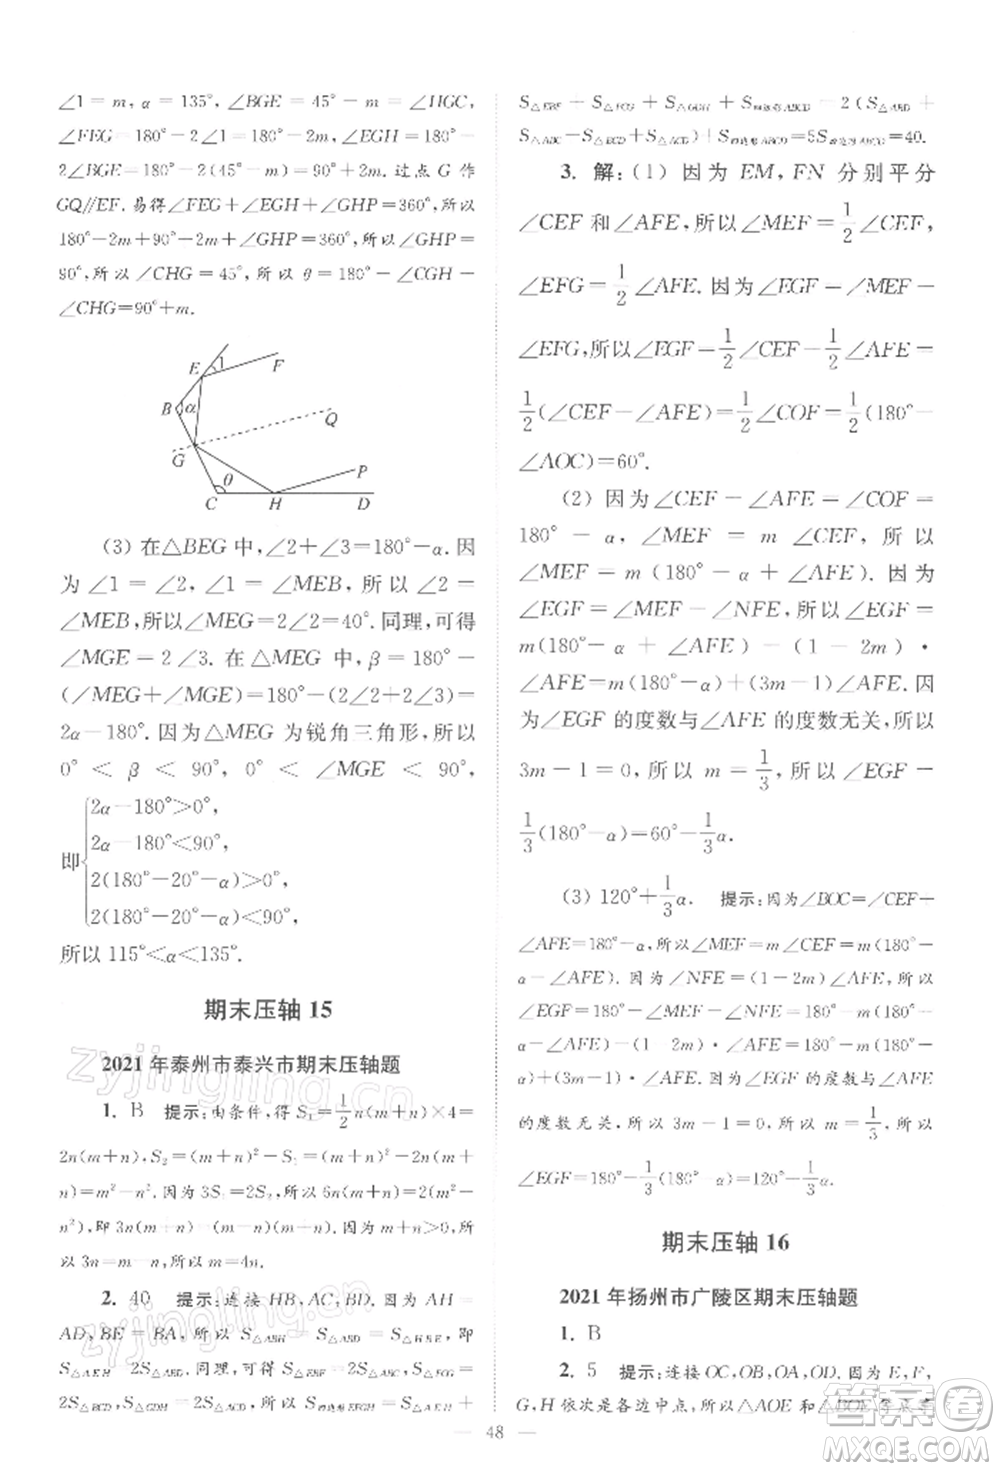 ∠1=m,α=135°,∠BGE=45°-m=∠HGC,
∠FEG=180°-2∠1=180°-2m,∠EGH=180°-
2∠BGE=180°-2(45°-m)=90°+2m.过点 G 作
GQ∥EF.易得∠FEG+∠EGH+∠GHP=360°,所以
180°-2m+90°+2m+∠GHP=360°,所以∠GHP=
90°,所以∠CHG=45°,所以θ=180°-∠CGH-
∠CHG=90°+m.
E 1 F
B α
Q
G
θ P
C H D
(3) 在△BEG 中,∠2+∠3=180°-α.因
为 ∠1 = ∠2, ∠1 = ∠MEB, 所 以 ∠2 =
∠MEB,所以∠MEG=2∠2=40°.同理,可得
∠MGE=2∠3.在△MEG 中,β=180°-
(∠MEG+∠MGE)=180°-(2∠2+2∠3)=
2α-180°.因为△MEG 为锐角三角形,所以
0° < β < 90°, 0° < ∠MGE < 90°,
即{2α-180°>0°,
2α-180°<90°,
2(180°-20°-α)>0°,
2(180°-20°-α)<90°,
所以 115°<α<135°.
期末压轴 15
2021 年泰州市泰兴市期末压轴题
1. B 提示:由条件,得 S₁=1/2n(m+n)×4=
2n(m+n),S₂=(m+n)²-S₁=(m+n)²-
2n(m+n)=m²-n².因为 3S₁=2S₂,所以 6n(m+n)=2(m²-
n²),即3n(m+n)=(m-n)(m+n).因为m+n>0,所
以 3n=m-n,所以 m=4n.
2. 40 提示:连接 HB,AC,BD.因为 AH=
AD,BE=BA,所以 S△ABH=S△ABD,S△ABH=S△HBE,即
S△AEH=2S△ABD.同理,可得 S△EBF=2S△ABC,S△FCG=
2S△BCD,S△GDH=2S△ACD,所以 S四边形EFGH=S△AEH+
S△EBF+S△FCG+S△GDH+S四边形ABCD=2(S△ABD+
S△ABC+S△BCD+S△ACD)+S四边形ABCD=5S四边形ABCD=40.
3. 解:(1) 因为 EM,FN 分别平分
∠CEF 和∠AFE,所以∠MEF=1/2∠CEF,
∠EFG=1/2∠AFE.因为∠EGF=∠MEF-
∠EFG,所以∠EGF=1/2∠CEF-1/2∠AFE=
1/2(∠CEF-∠AFE)=1/2∠COF=1/2(180°-
∠AOC)=60°.
(2) 因为∠CEF-∠AFE=∠COF=
180° - α, ∠MEF = m ∠CEF, 所 以
∠MEF=m(180°-α+∠AFE).因为
∠EGF=∠MEF-∠NFE,所以∠EGF=
m(180° - α + ∠AFE) - (1 - 2m) ·
∠AFE=m(180°-α)+(3m-1)∠AFE.因
为∠EGF 的度数与∠AFE 的度数无关,所以
3m-1=0,所以 m=1/3,所以∠EGF=
1/3(180°-α)=60°-1/3α.
(3) 120°+1/3α. 提示:因为∠BOC=∠CEF+
∠AFE=180°-α,所以∠MEF=m∠CEF=m(180°-
α-∠AFE).因为∠NFE=(1-2m)∠AFE,所以
∠EGF=180°-∠MEF-∠NFE=180°-m(180°-
α-∠AFE)-(1-2m)∠AFE=180°-m(180°-
α)+(3m-1)∠AFE.因为∠EGF 的度数与∠AFE 的
度数无关,所以 3m-1=0,所以 m=1/3,所以
∠EGF=180°-1/3(180°-α)=120°+1/3α.
期末压轴 16
2021 年扬州市广陵区期末压轴题
1. B
2. 5 提示:连接 OC,OB,OA,OD.因为 E,F,
G,H 依次为各边中点,所以△AOE 和△BOE 等底等
— 48 —
zyjingling.cn
zyjingling.cn
答案圈
MXQE.COM